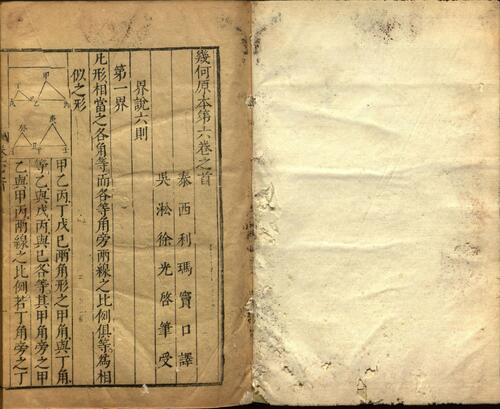 幾何原本第六卷之首
泰西利瑪竇口譯
吳淞徐光啓筆受
界說六則
第一界
凡形相當之各角等而各等角旁兩線之比例俱等為相
似之形
甲乙丙丁戊己兩角形之甲角與丁角
等乙與戊丙與己各等其甲角旁之甲
乙與甲丙兩線之比例若丁角旁之丁